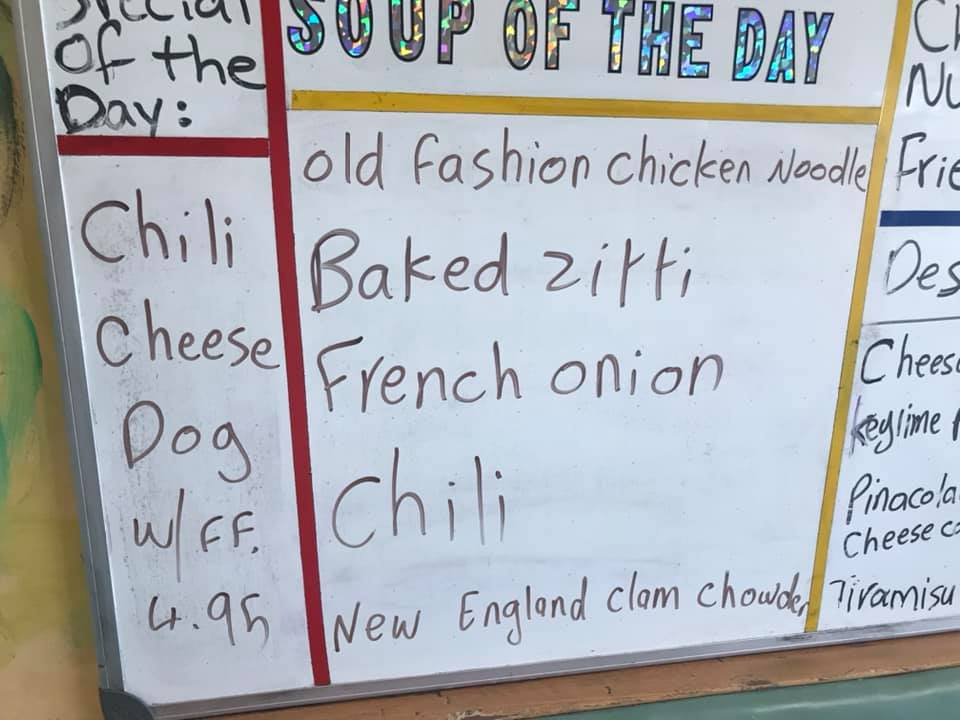 Special
Of the
Day:
Chili
Cheese
Dog
W/FF.
4.95
SOUP OF THE DAY
old fashion chicken Noodle
Baked zitti
French onion
Chili
New England clam chowder
Frie
Des
Cheesc
keylime
Pinacola
Cheese co
Tiramisu